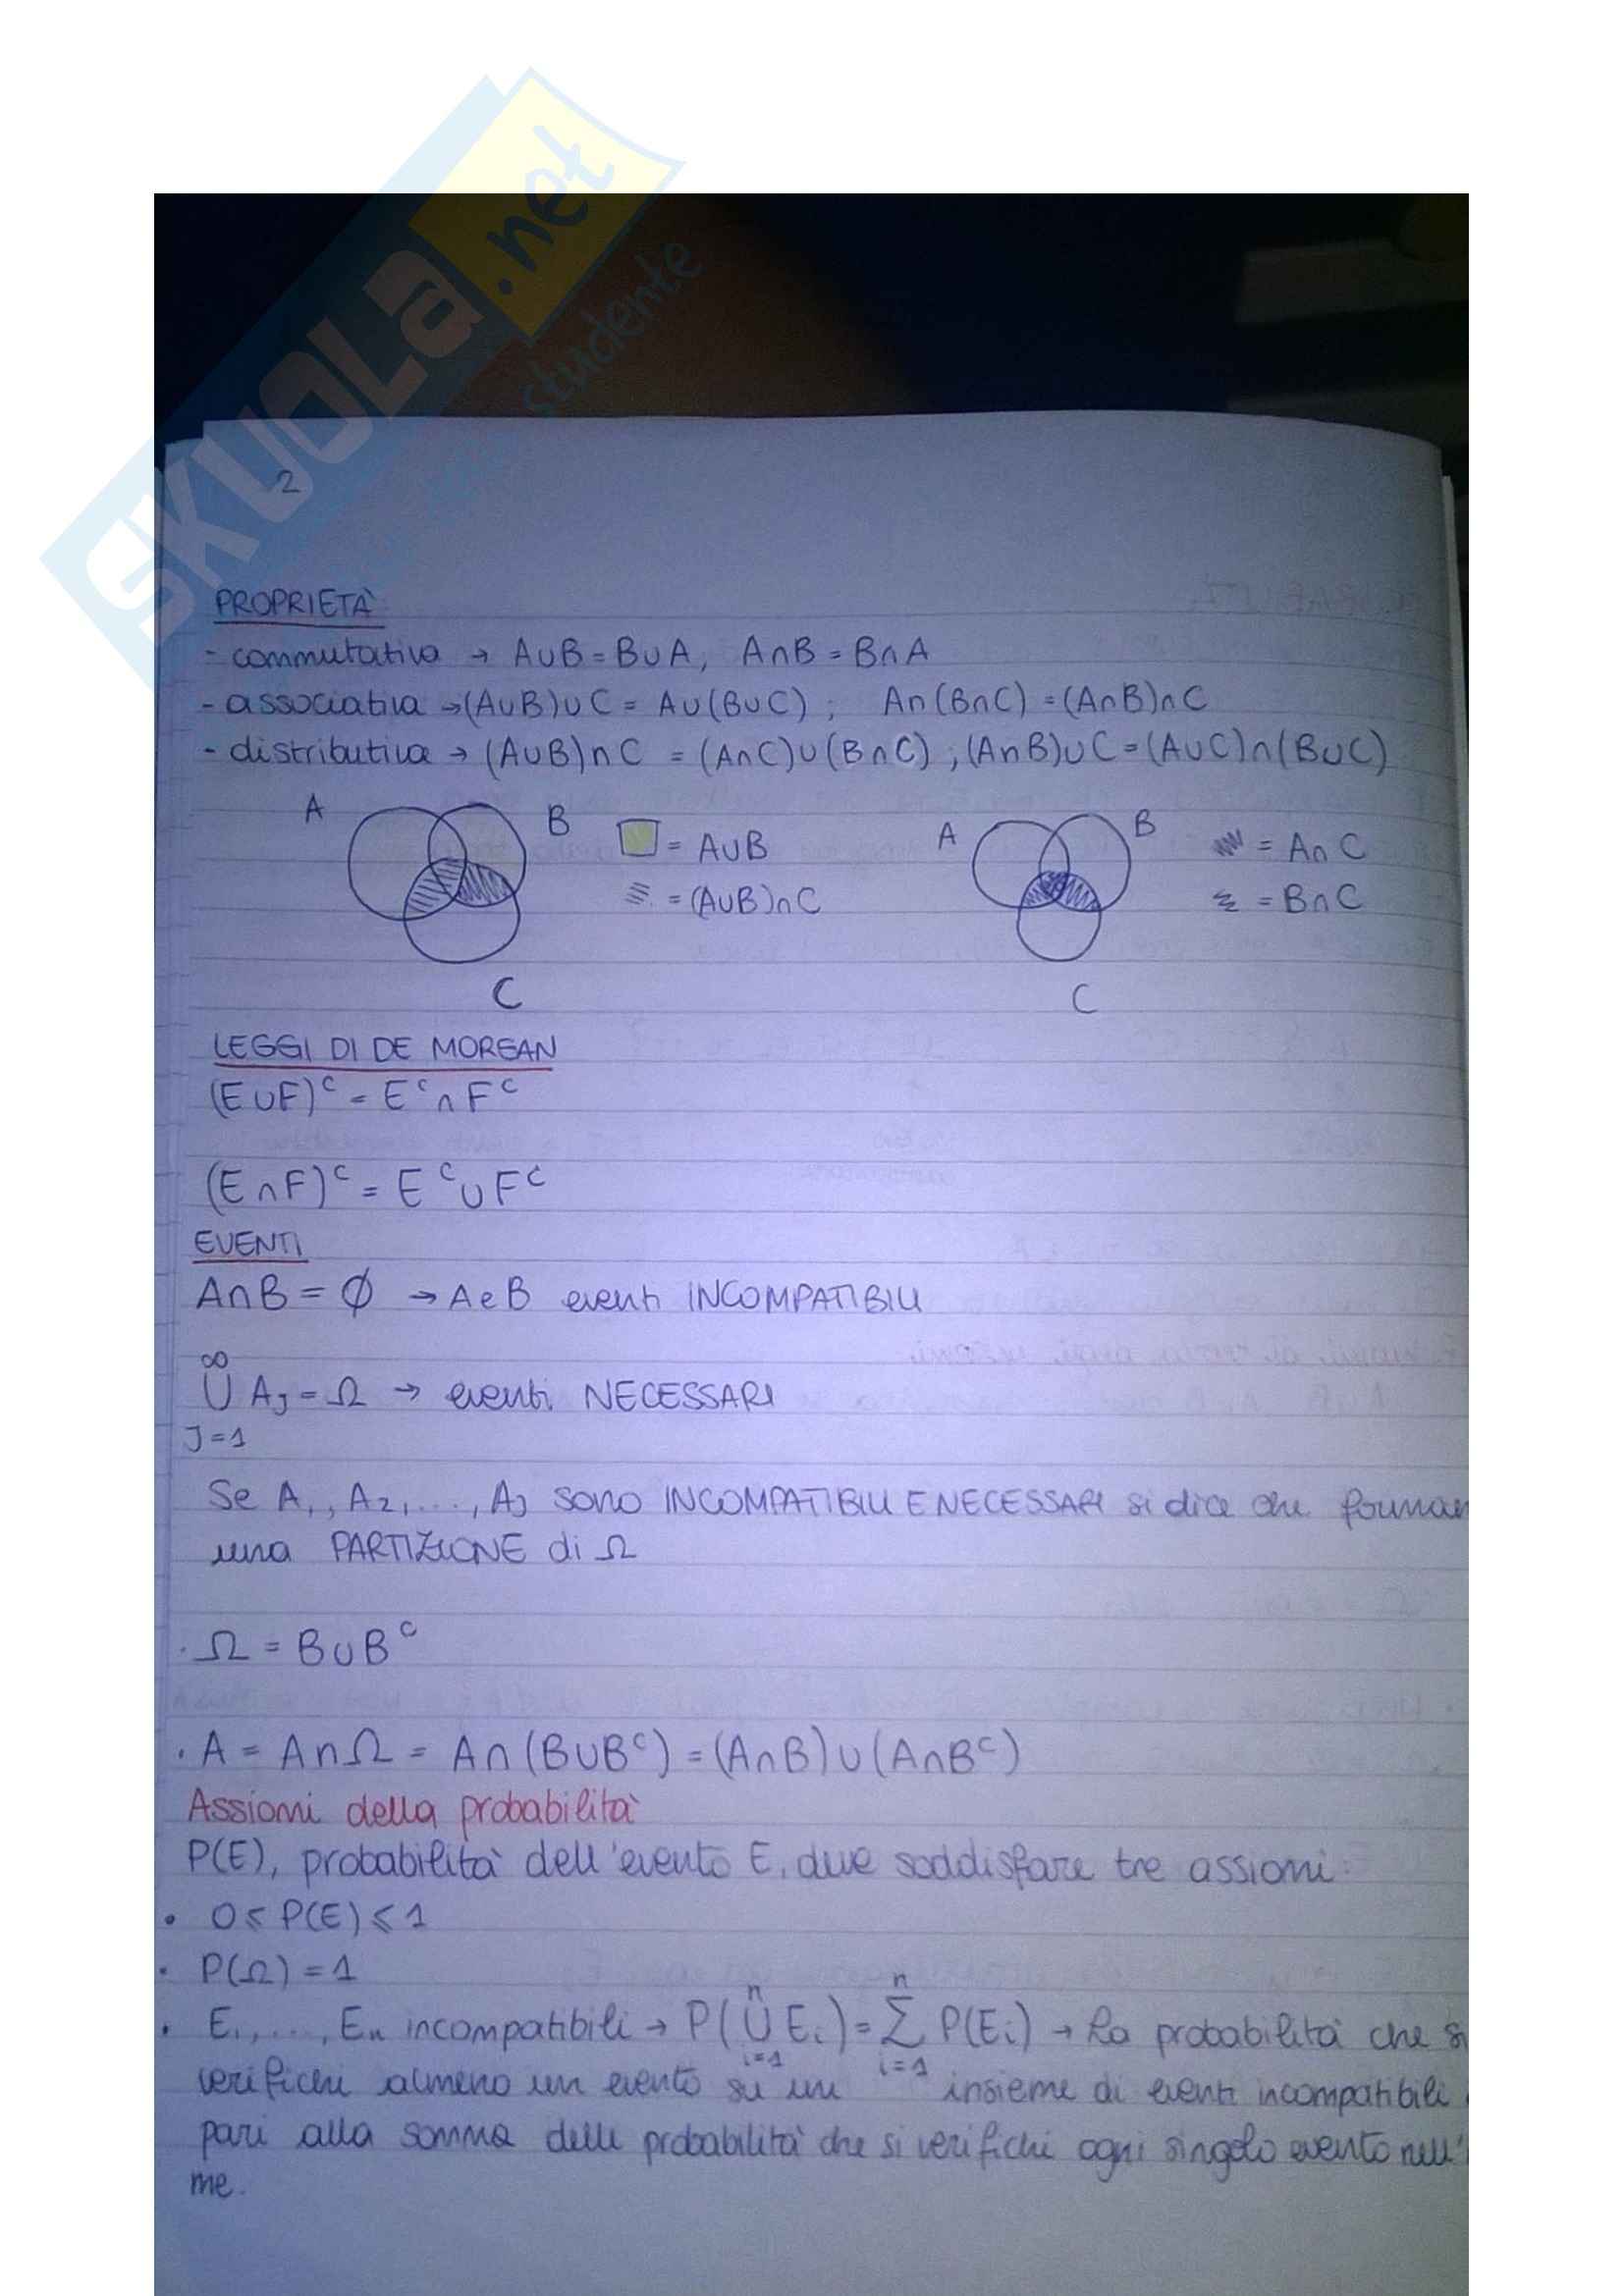 SKUOLA.net
studente
2
PROPRIETÀ
- commutativa → A∪B = B∪A, A∩B = B∩A
- associativa → (A∪B)∪C = A∪(B∪C) ; A∩(B∩C) = (A∩B)∩C
- distributiva → (A∪B)∩C = (A∩C)∪(B∩C) ; (A∩B)∪C = (A∪C)∩(B∪C)
A B = A∪B A B = A∩C
= (A∪B)∩C = B∩C
C C
LEGGI DI DE MORGAN
(E∪F)ᶜ = Eᶜ∩Fᶜ
(E∩F)ᶜ = Eᶜ∪Fᶜ
EVENTI
A∩B = ∅ → A e B eventi INCOMPATIBILI
∞
∪ AJ = Ω → eventi NECESSARI
J=1
Se A1, A2, ..., AJ sono INCOMPATIBILI E NECESSARI si dice che forman
una PARTIZIONE di Ω
· Ω = B∪Bᶜ
· A = A∩Ω = A∩(B∪Bᶜ) = (A∩B)∪(A∩Bᶜ)
Assiomi della probabilità
P(E), probabilità dell'evento E, deve soddisfare tre assiomi:
• 0 ≤ P(E) ≤ 1
• P(Ω) = 1
n n
• E1, ..., En incompatibili → P(∪ Ei) = Σ P(Ei) → La probabilità che si
i=1 i=1
verifichi almeno un evento su un insieme di eventi incompatibili
pari alla somma delle probabilità che si verifichi ogni singolo evento nell'
me.